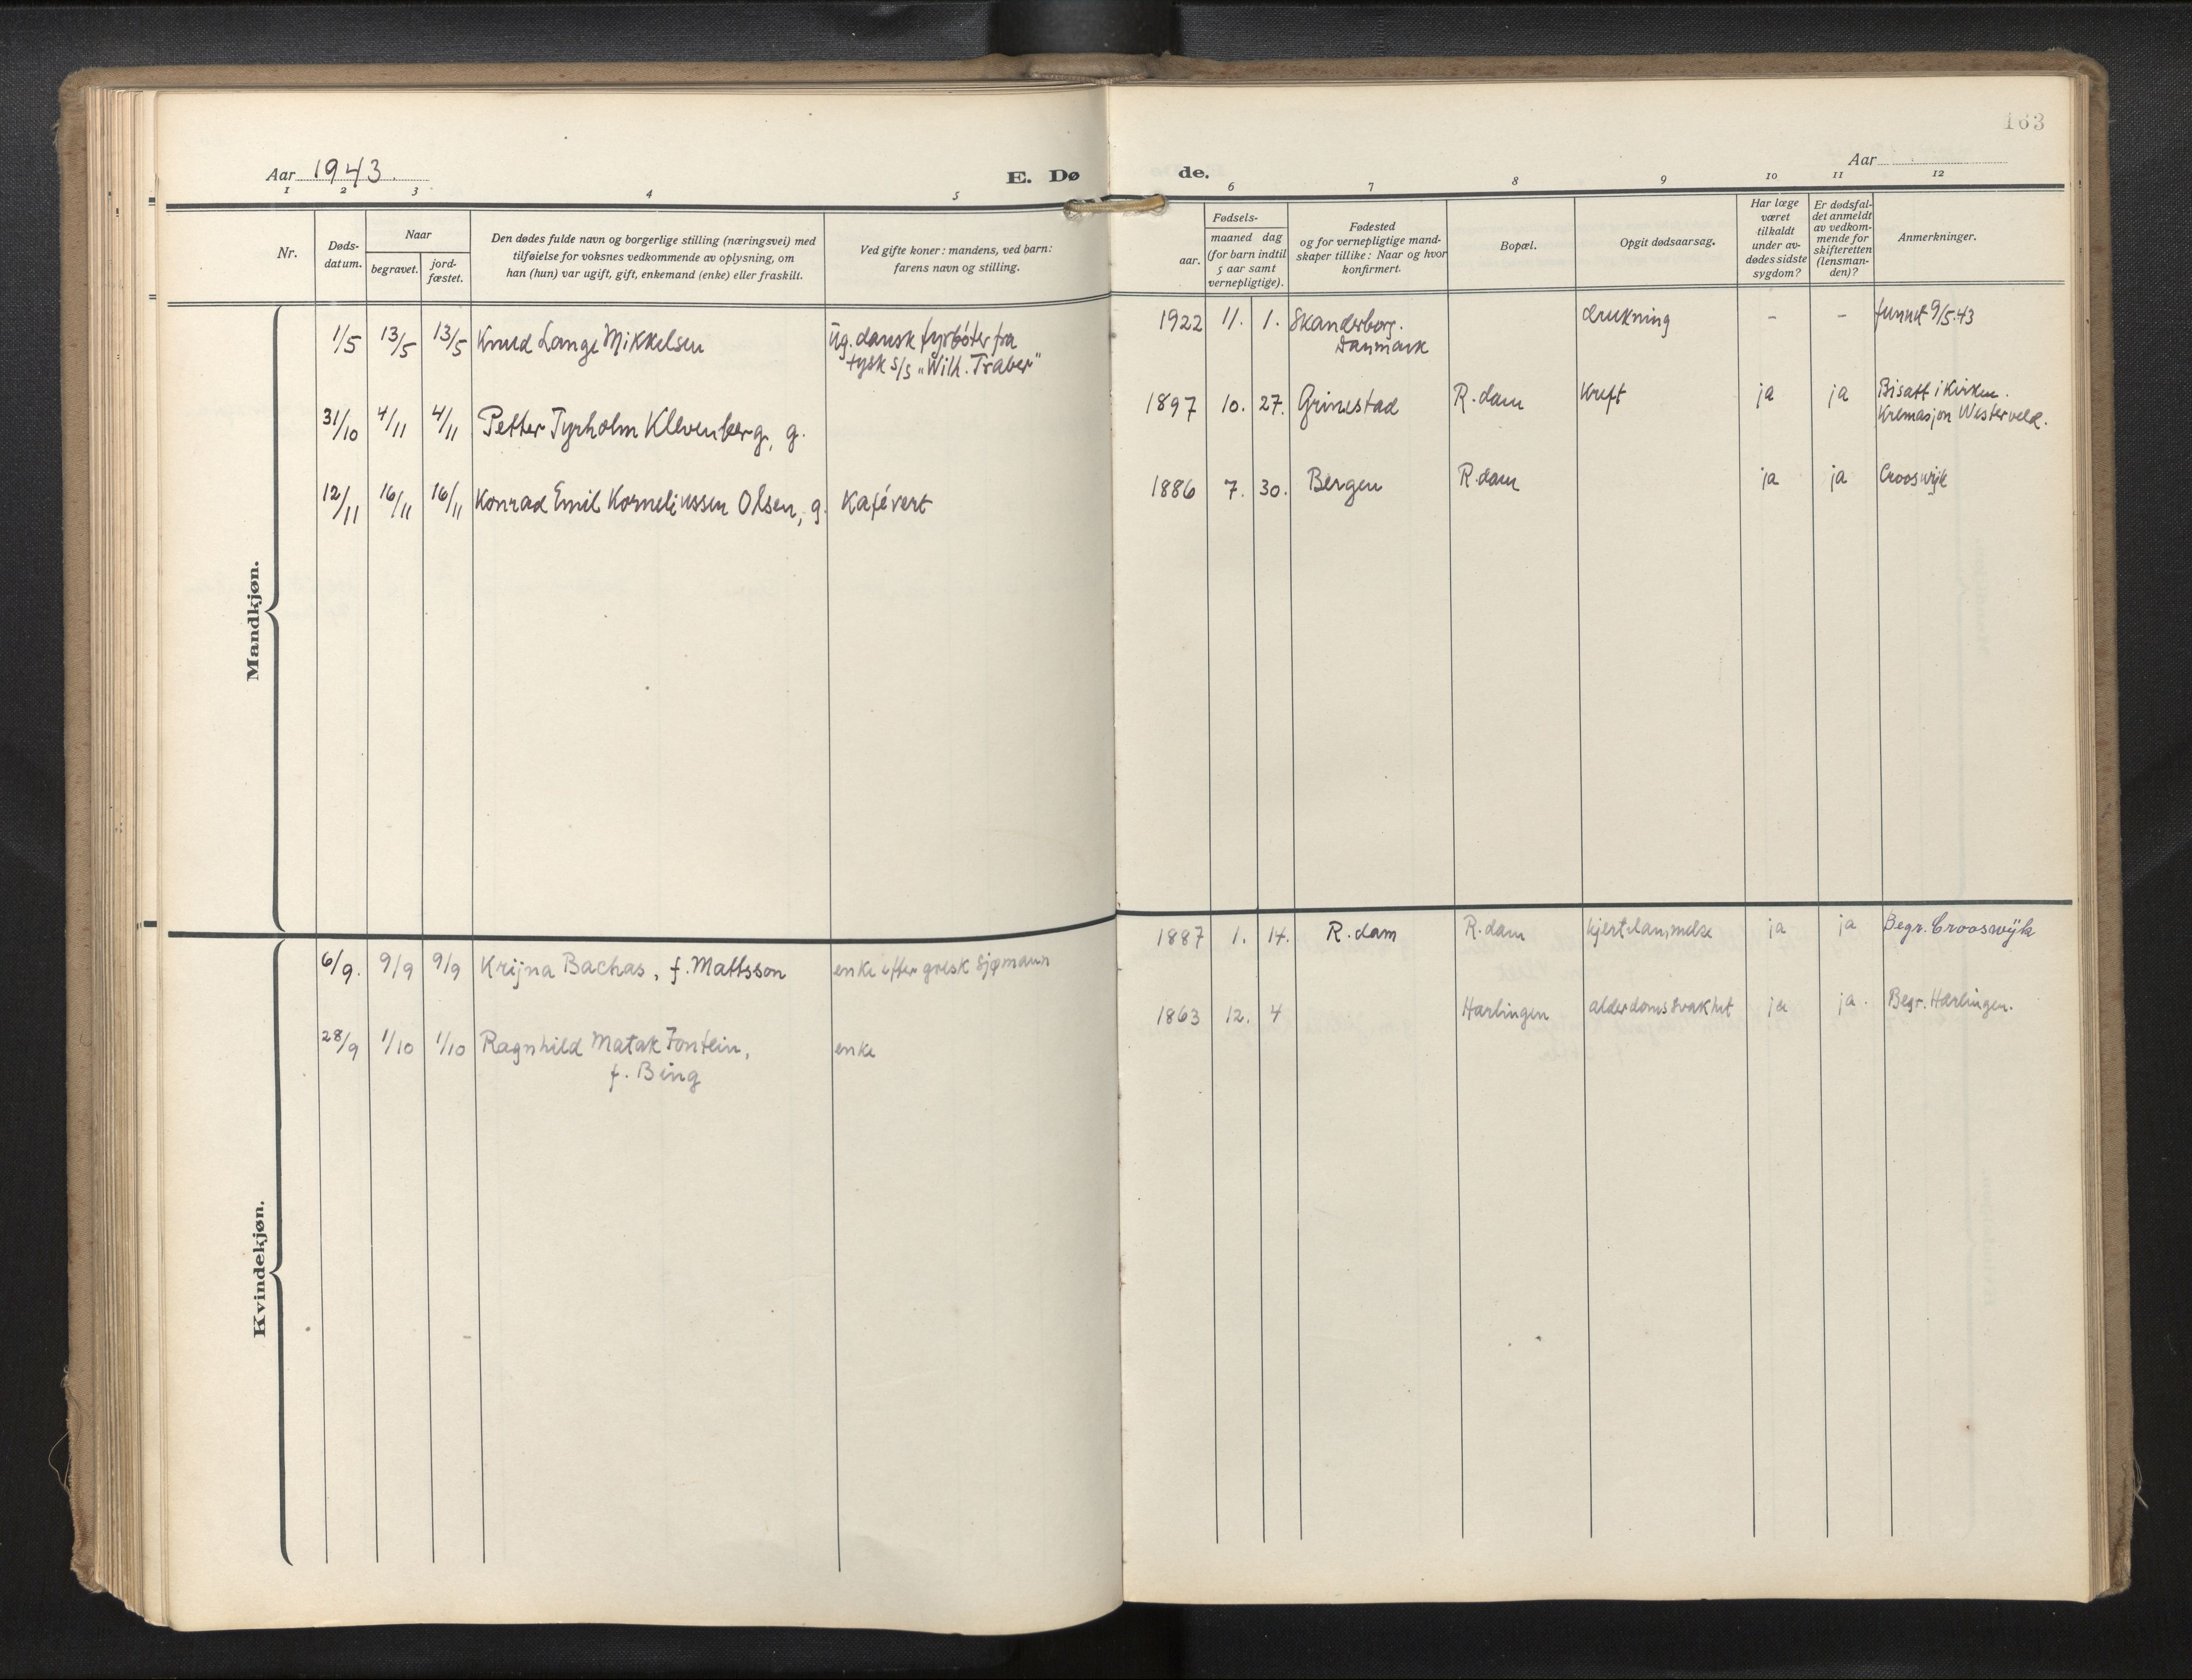 163
Aar 1943.
E. Dø
de.
Aar
1 2 3 4 5 6 7 8 9 10 11 12
Nr.
Døds-
datum.
Naar
begravet.
jord-
fæstet.
Den dødes fulde navn og borgerlige stilling (næringsvei) med
tilføielse for voksnes vedkommende av oplysning, om
han (hun) var ugift, gift, enkemand (enke) eller fraskilt.
Ved gifte koner: mandens, ved barn:
farens navn og stilling.
Fødsels-
aar.
maaned dag
(for barn indtil
5 aar samt
vernepligtige).
Fødested
og for vernepligtige mand-
skaper tillike: Naar og hvor
konfirmert.
Bopæl.
Opgit dødsaarsag.
Har læge
været
tilkaldt
under av-
dødes sidste
sygdom?
Er dødsfal-
det anmeldt
av vedkom-
mende for
skifteretten
(lensman-
den)?
Anmerkninger.
Mandkjøn.
1/5 13/5 13/5 Knud Lange Mikkelsen ug. dansk fyrbøter fra
tysk s/s „Wilh. Traber"
1922 11. 1. Skanderborg.
Danmark
drukning - - funnet 9/5.43
31/10 4/11 4/11 Petter Tyrholm Klevenberg, g.
1897 10. 27. Grinestad R.dam Kreft ja ja Bisatt i Kirken.
Kremasjon Westerveld.
12/11 16/11 16/11 Konrad Emil Korneliussen Olsen, g. Kafévert
1886 7. 30. Bergen R.dam ja ja Crooswijk
Kvindekjøn.
6/9. 9/9 9/9 Krijna Bachas, f. Mattsson enke efter gresk sjømann
1887 1. 14. R.dam R.dam hjertelammelse ja ja Begr. Crooswijk
28/9 1/10 1/10 Ragnhild Matak Fontein, enke
f. Bing
1863 12. 4 Harlingen alderdomssvakhet ja ja. Begr. Harlingen.